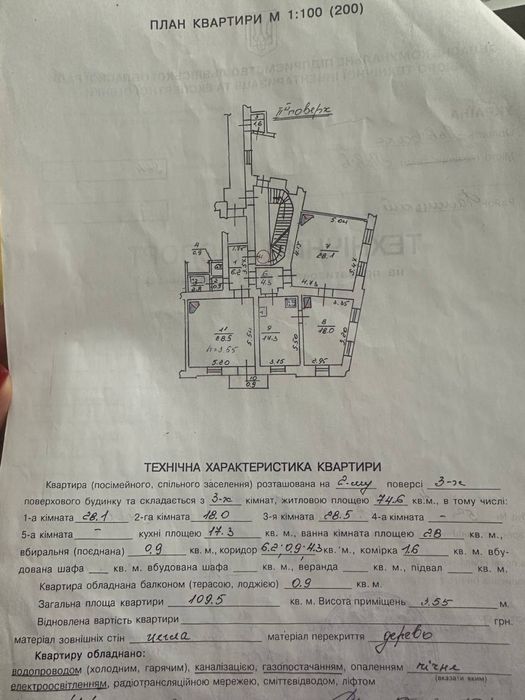 ПЛАН КВАРТИРИ М 1:100 (200)
IIй поверх
3
1.6
5.04
7
28.1
4.12
5.47
4.73
4
0.9
1
6.2
6
4.3
11
28.5
h=3.55
5.54
5.20
9
17.3
5.50
3.15
8
18.0
3.35
2.95
10
0.9
ТЕХНІЧНА ХАРАКТЕРИСТИКА КВАРТИРИ
Квартира (посімейного, спільного заселення) розташована на 2-му поверсі 3-х
поверхового будинку та складається з 3-х кімнат, житловою площею 74.6 кв.м., в тому числі:
1-а кімната 28.1 2-га кімната 18.0 3-я кімната 28.5 4-а кімната –
5-а кімната – кухні площею 17.3 кв. м., ванна кімната площею 2.8 кв. м.,
вбиральня (поєднана) 0.9 кв. м., коридор 6.2; 0.9; 4.3 кв. м., комірка 1.6 кв. м. вбу-
дована шафа кв. м. вбудована шафа кв. м., веранда кв. м., підвал кв. м.
Квартира обладнана балконом (терасою, лоджією) 0.9 кв. м.
Загальна площа квартири 109.5 кв. м. Висота приміщень 3.55 м.
Відновлена вартість квартири грн.
матеріал зовнішніх стін цегла матеріал перекриття дерево
Квартиру обладнано:
водопроводом (холодним, гарячим), каналізацією, газопостачанням, опаленням пічне
(вказати яким)
електроосвітленням, радіотрансляційною мережею, сміттєвідводом, ліфтом